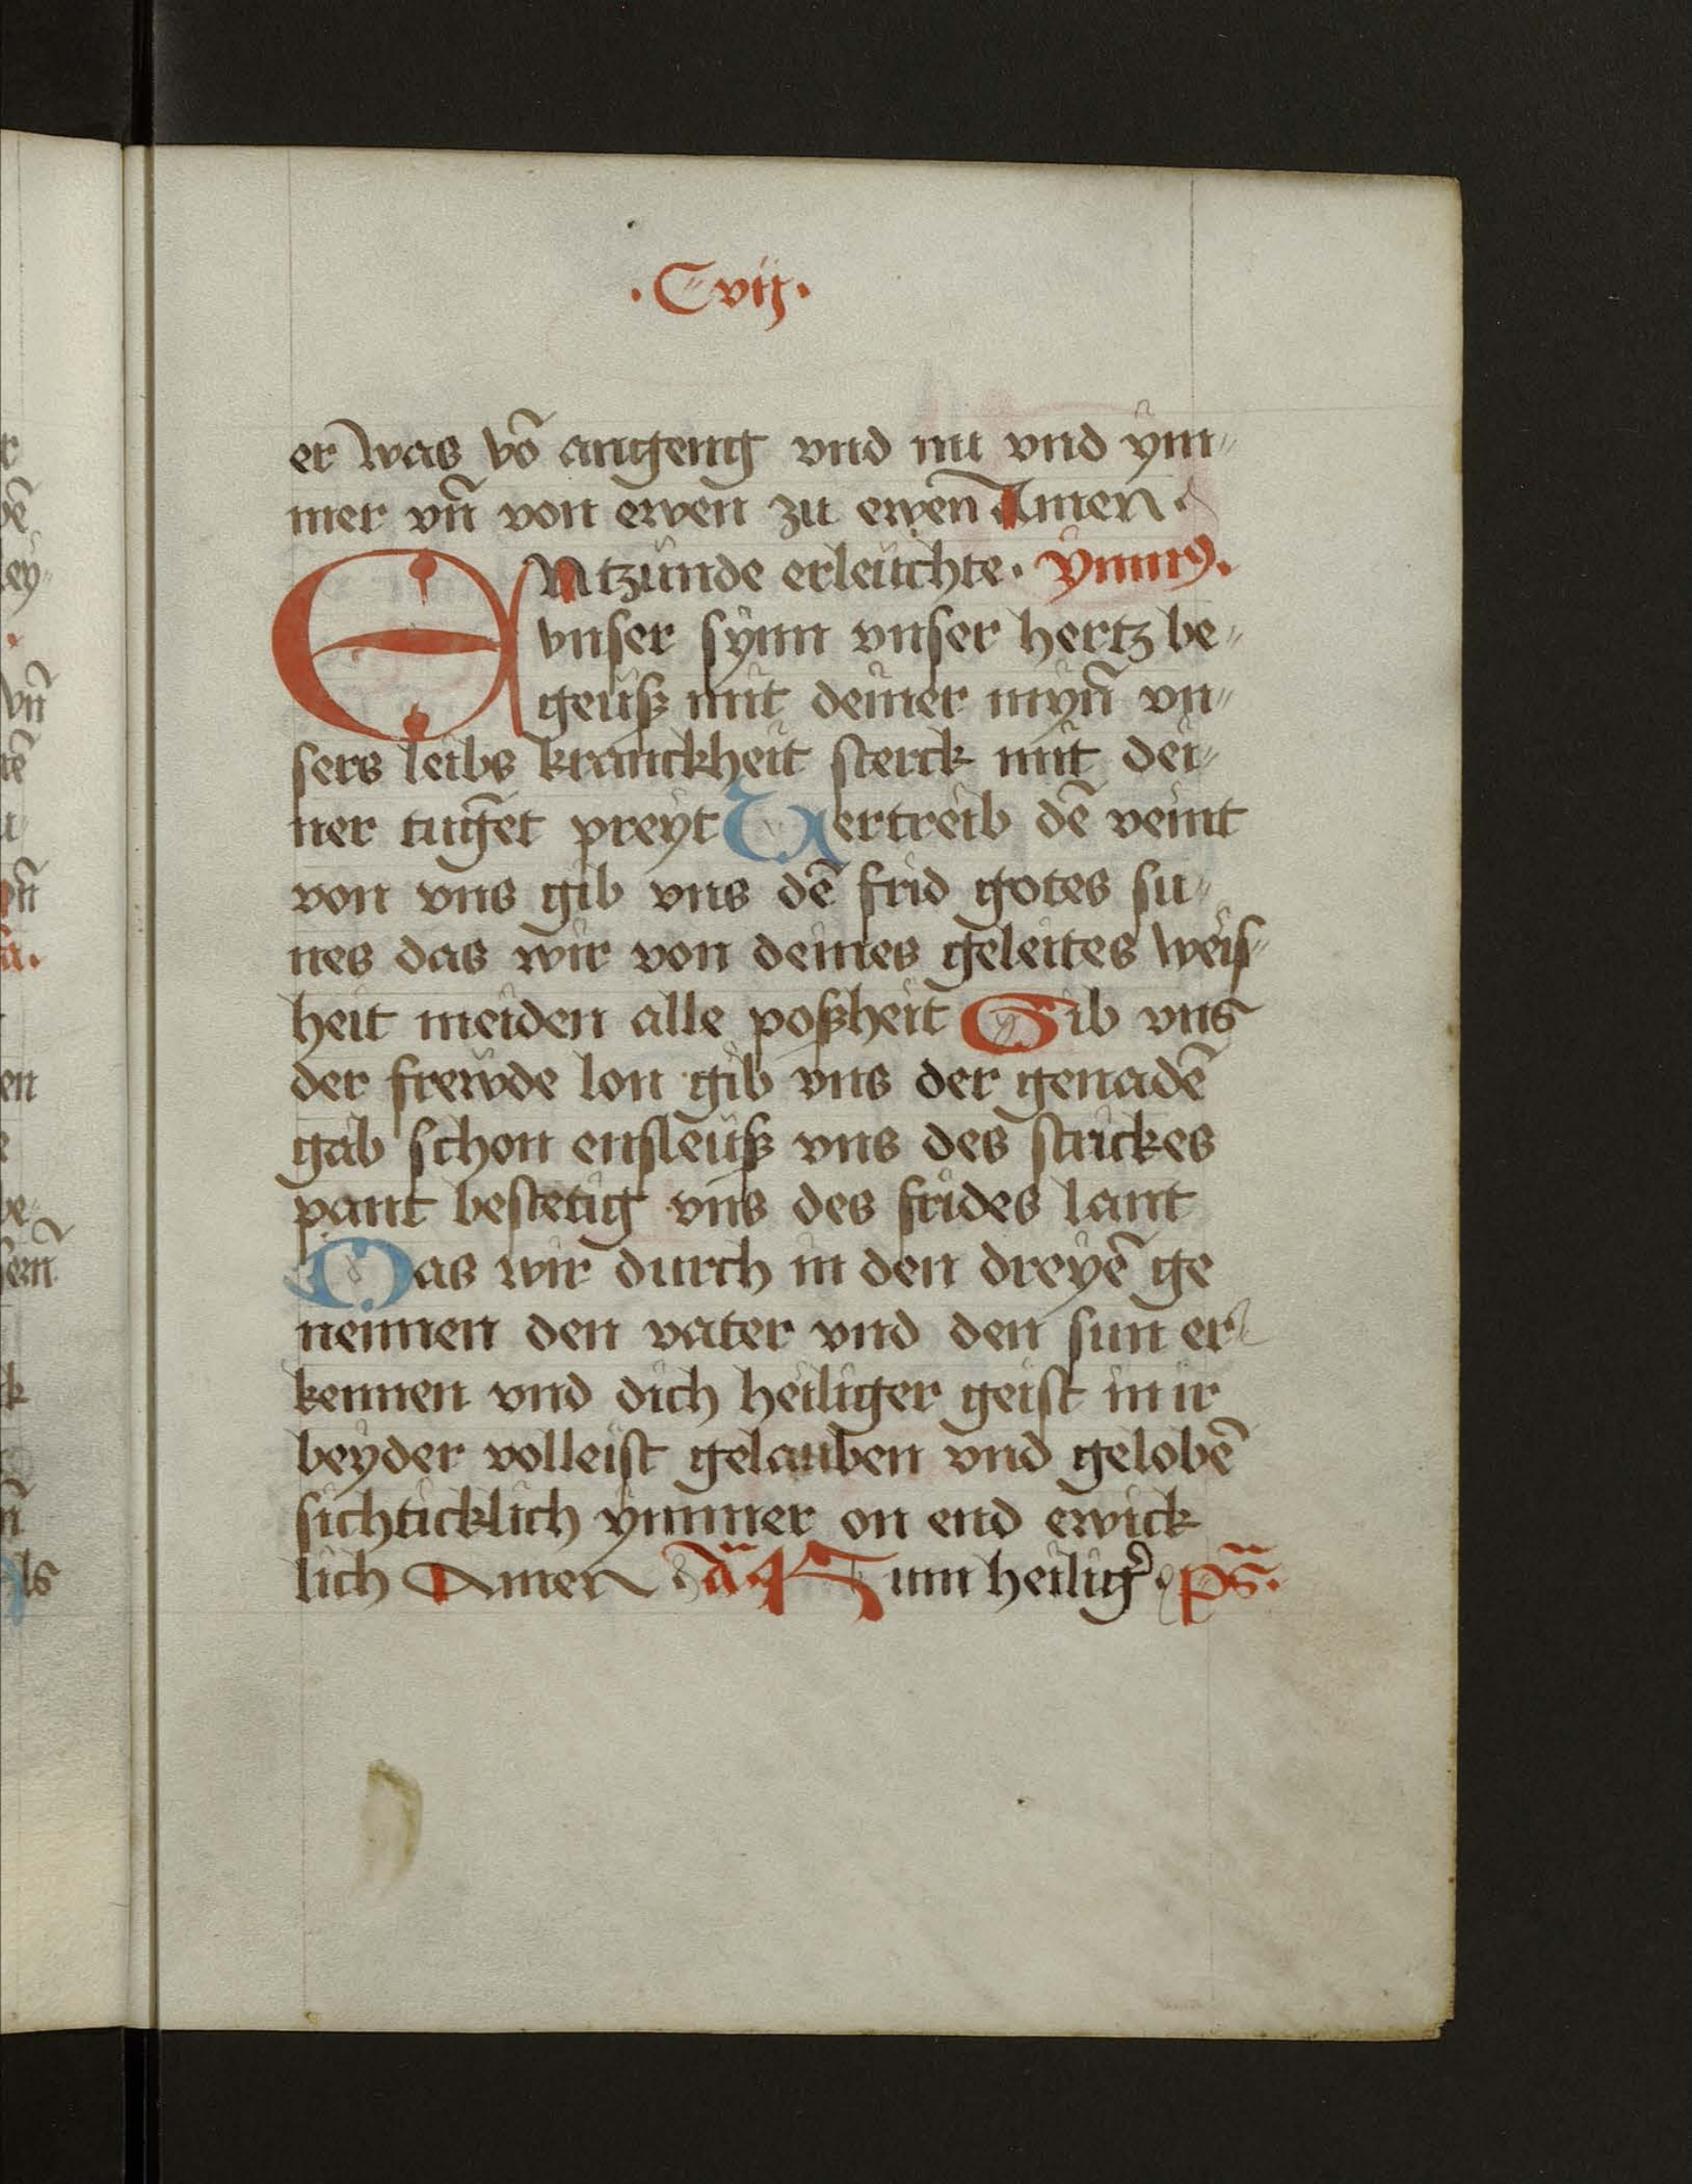 ·Cvij·
er was vō angeng vnd nu vnd ym⸗
mer vn̄ von ewen zu ewen̄ Amen·
ENtzünde erleüchte· ymnꝯ.
vnser synn vnser hertz be⸗
geüß mit deiner myn̄ vn⸗
sers leibs kranckheit sterck mit dei⸗
ner tuḡet preyt Vertreib dē veint
von vns gib vns dē frid gotes su⸗
nes das wir von deines geleites weis⸗
heit meiden alle poßheit Gib vns
der frewde lon gib vns der genadē
gab schon ensleüß vns des strickes
pant bestetig vns des frides lant
Das wir durch in den dreyē ge
nennen den vater vnd den sun er
kennen vnd dich heiliger geist in ir
beyder volleist gelauben vnd gelobē
sichticklich ymmer on end ewick
lich Amen ā Kum heilig̾· pS̄.